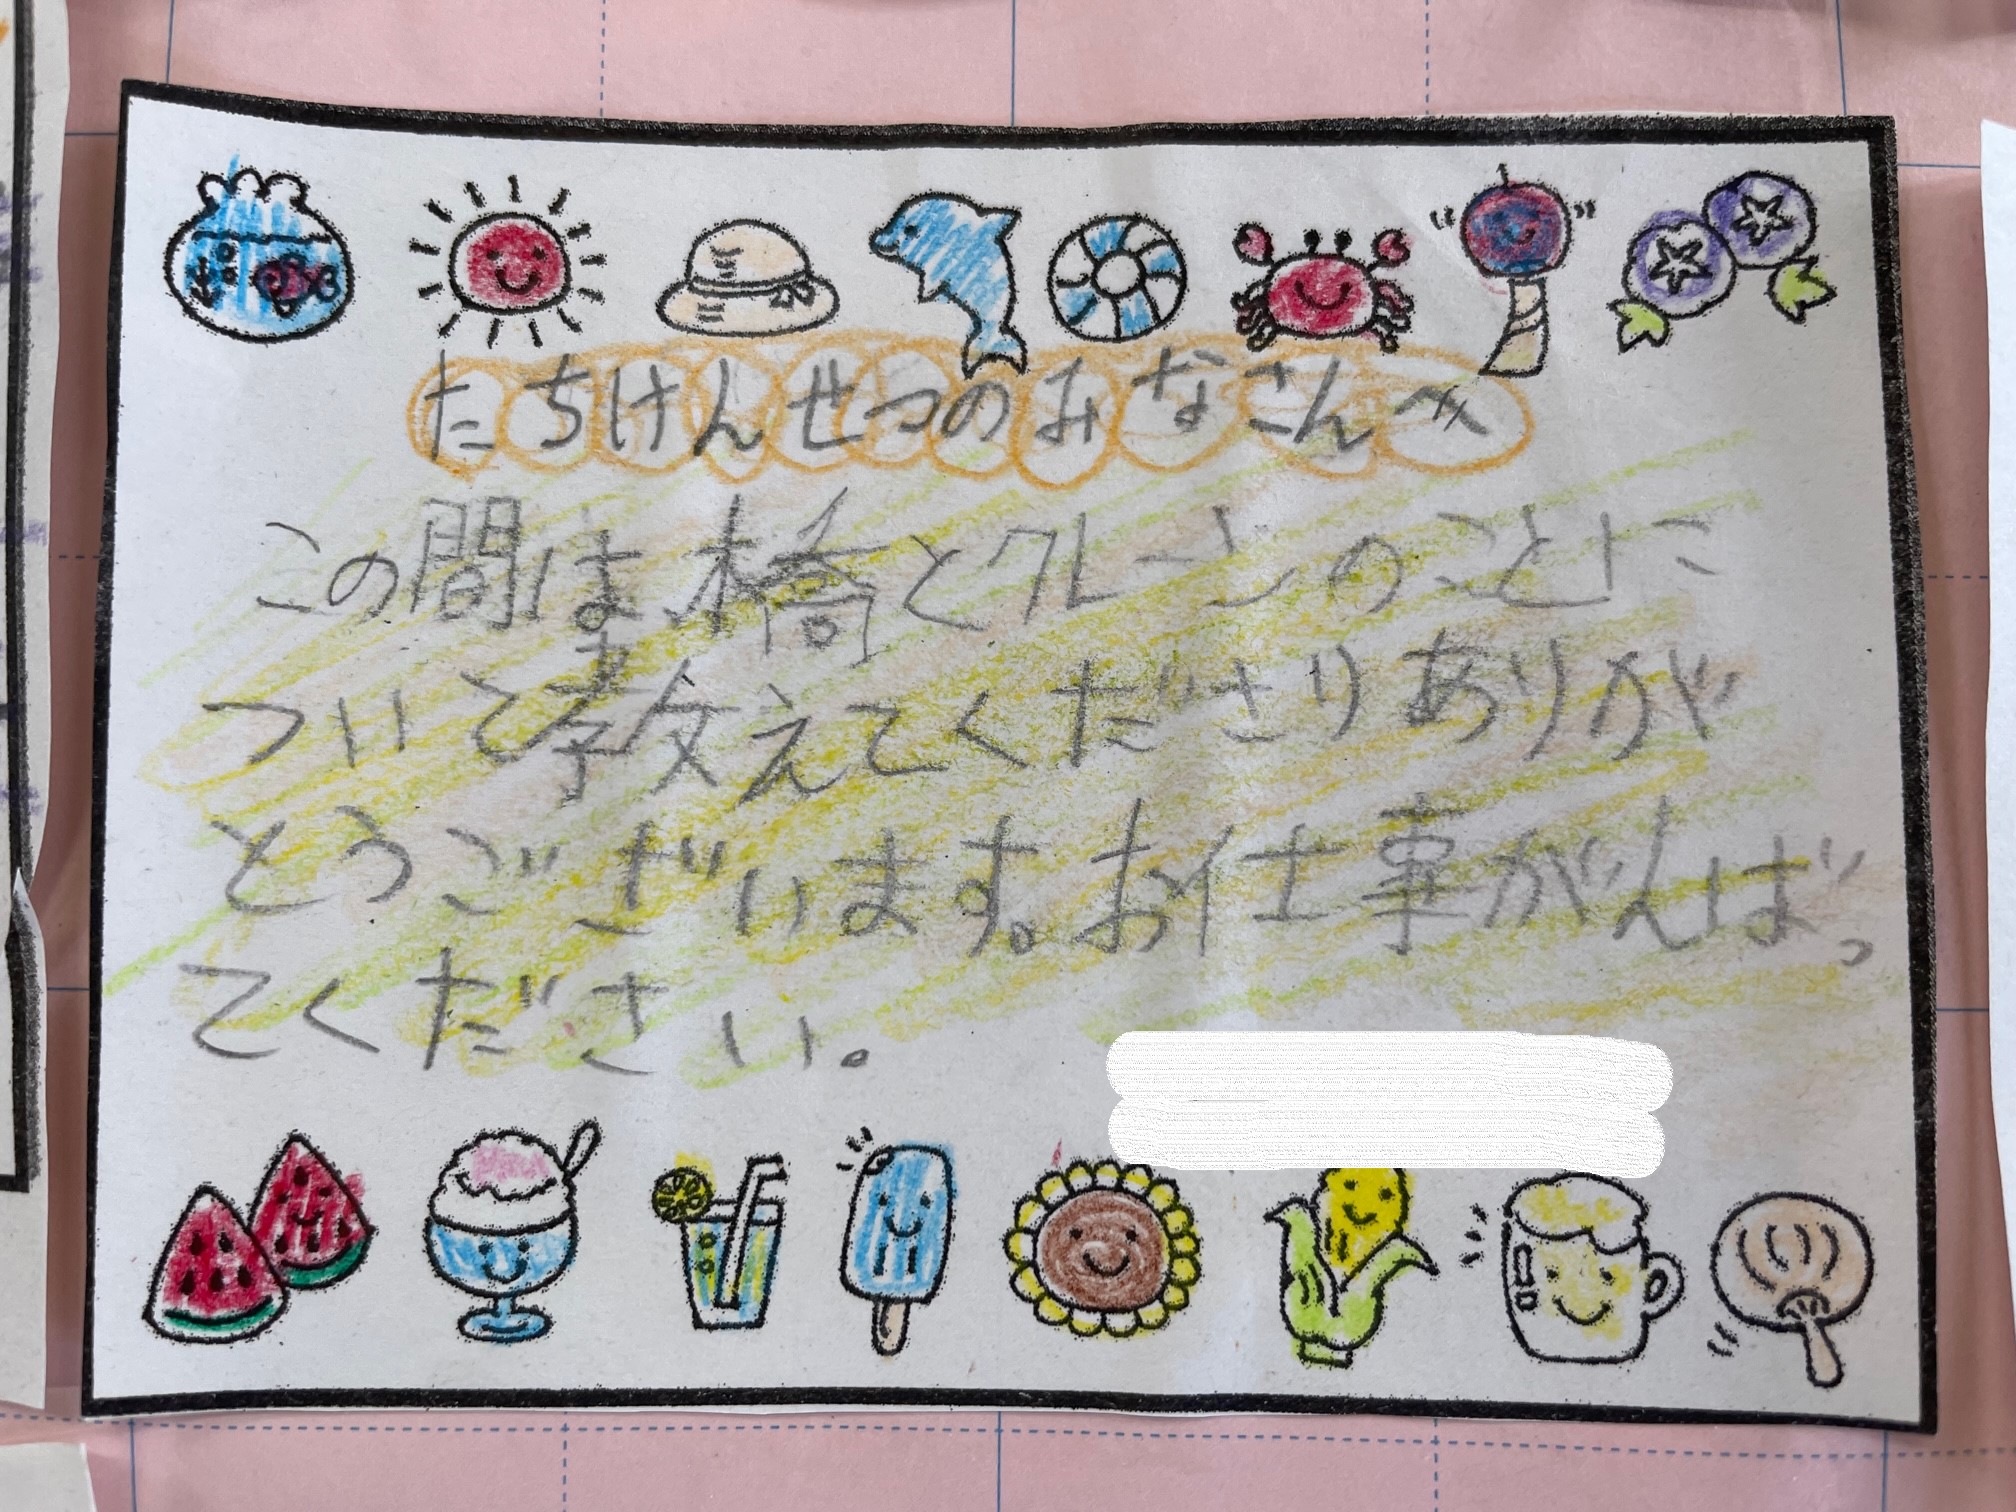 たちけんせつのみなさんへ
この間は橋とクレーンのことに
ついて教えてくださりありが
とうございます。お仕事がんばっ
てください。